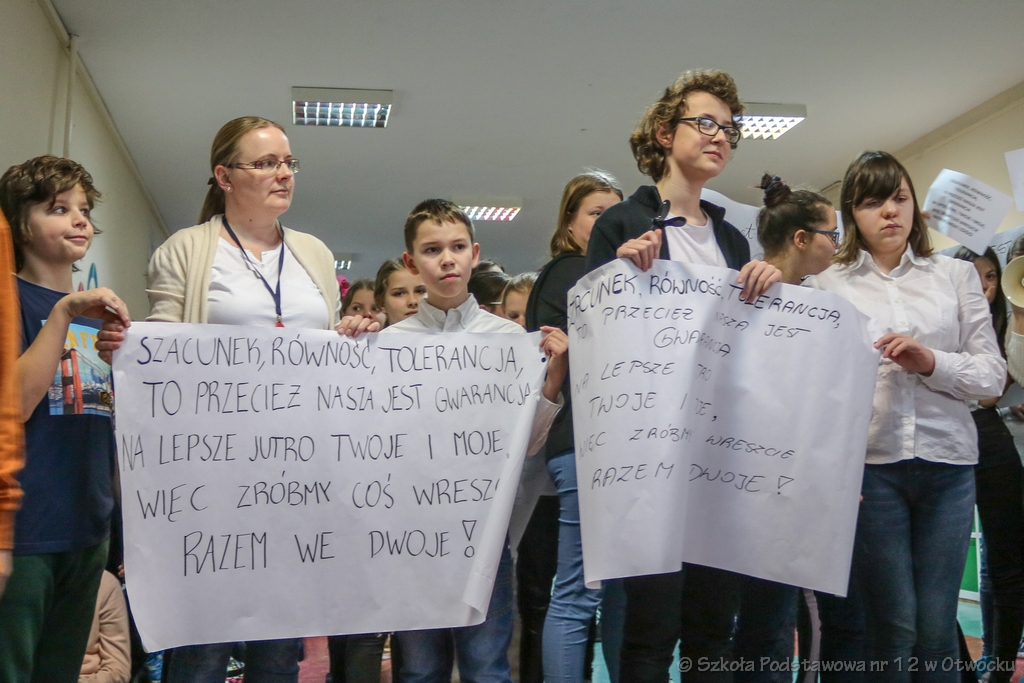 SZACUNEK, RÓWNOŚĆ, TOLERANCJA,
TO PRZECIEŻ NASZA JEST GWARANCJA
NA LEPSZE JUTRO TWOJE I MOJE.
WIĘC ZRÓBMY COŚ WRESZ
RAZEM WE DWOJE!
SZACUNEK, RÓWNOŚĆ, TOLERANCJA,
TO PRZECIEŻ NASZA JEST
GWARANCJA
NA LEPSZE
TWOJE I
WIĘC ZRÓBMY WRESZCIE
RAZEM DWOJE!
© Szkoła Podstawowa nr 12 w Otwocku